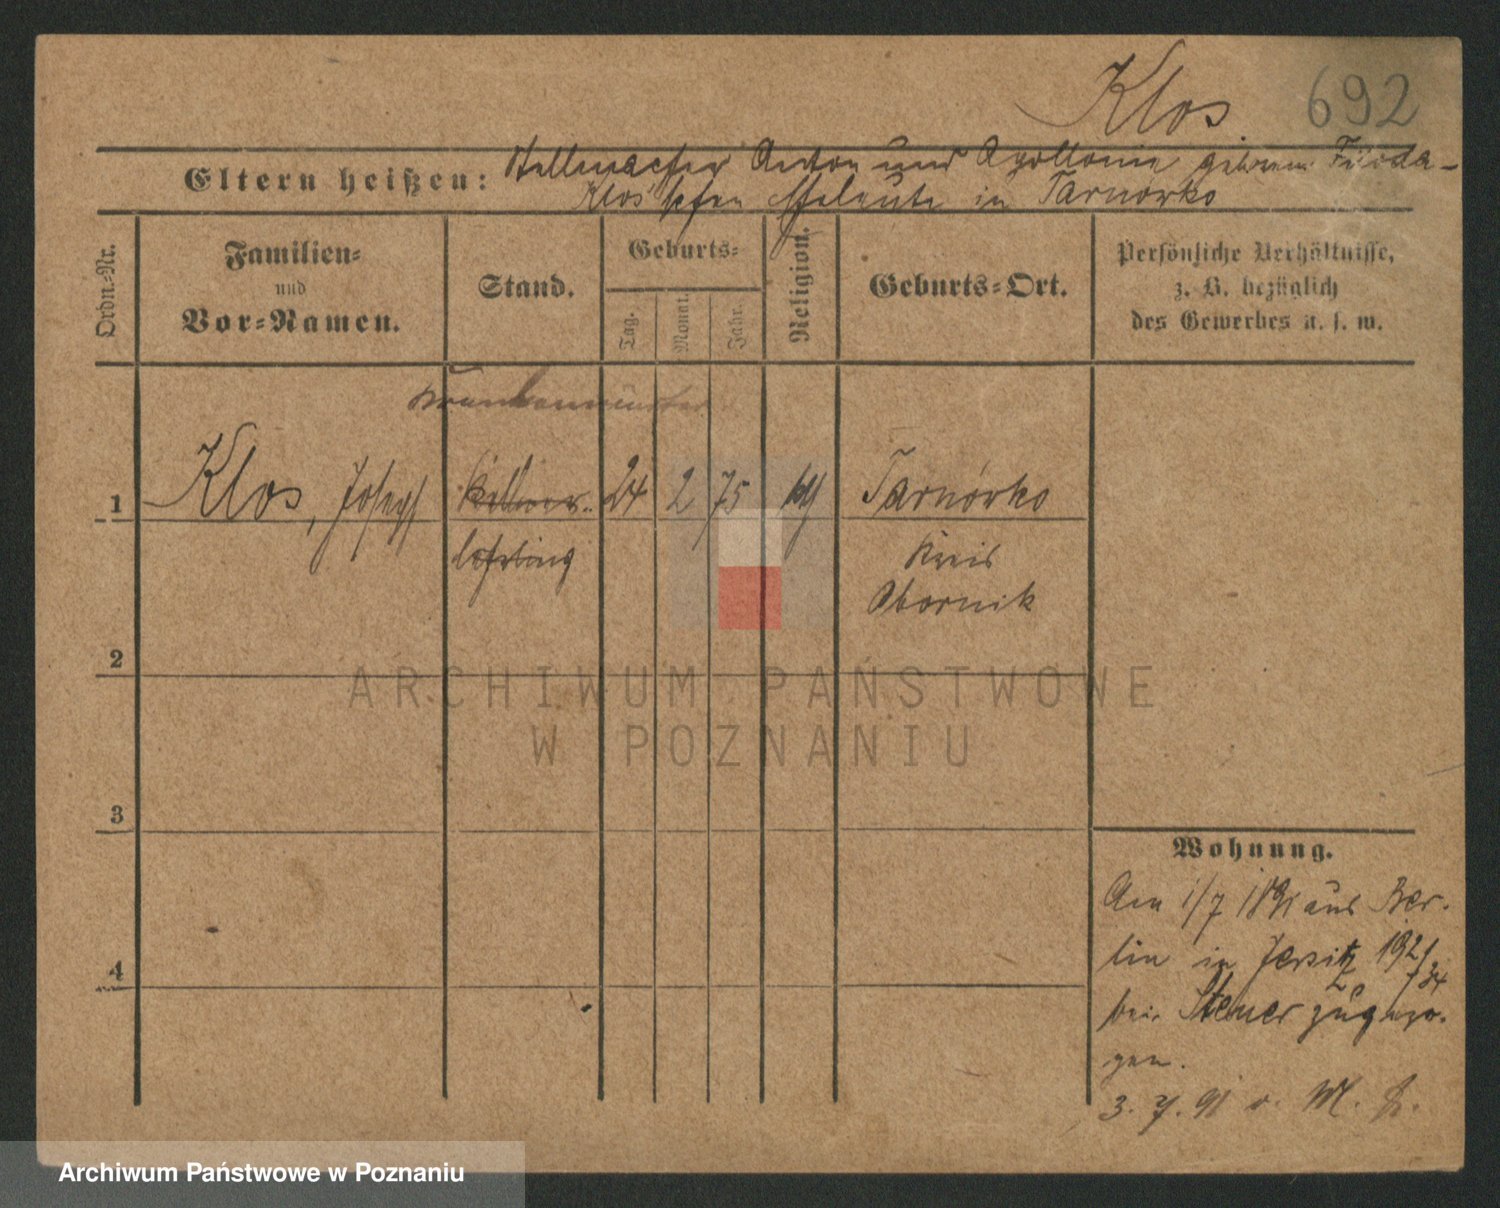 Klos 692
Eltern heißen: Stellmacher Anton und Apollonie geborene
Klos'schen Eheleute in Tarnowko
Ordn.-Nr.
Familien-
und
Vor-Namen.
Stand.
Geburts-
Tag.
Monat.
Jahr.
Religion.
Geburts-Ort.
Persönliche Verhältnisse,
z. B. bezüglich
des Gewerbes u. s. w.
1 Klos, Joseph Kellner- 24 2 75 Tarnówko
lehrling
Kreis
Obornik
2
3
4
Wohnung.
Am 1/7 1891 aus Ber-
lin in Jersitz
bei Steuer zugezo-
gen.
3. 7. 91
ARCHIWUM PAŃSTWOWE
W POZNANIU
Archiwum Państwowe w Poznaniu